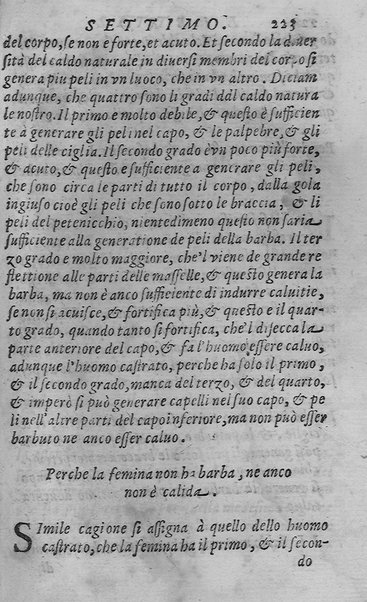 SETTIMO. 223
del corpo, se non e forte, et acuto. Et secondo la diver
sità del caldo naturale in diversi membri del corpo si
genera piu peli in vn luoco, che in vn altro. Diciam
adunque, che quattro sono li gradi ddl caldo natura
le nostro. Il primo e molto debile, & questo è sufficien
te à generare gli peli nel capo, & le palpebre, & gli
peli delle ciglia. Il secondo grado è vn poco più forte,
& acuto, & questo e sufficiente a generare gli peli,
che sono circa le parti di tutto il corpo, dalla gola
ingiuso cioè gli peli che sono sotto le braccia, & li
peli del petenicchio, nientedimeno questo non saria
sufficiente alla generatione de peli della barba. Il ter
zo grado e molto maggiore, che'l viene de grande re
flettione alle parti delle masselle, & questo genera la
barba, ma non è anco suffieiente di indurre caluitie,
se non si acuisce, & fortifica più, & questo e il quar
to grado, quando tanto si fortifica, che'l disecca la
parte anteriore del capo, & fa l'huomo essere caluo,
adunque l'huomo castrato, perche ha solo il primo,
& il secondo grado, manca del terzo, & del quarto,
& imperò si può generare capelli nel suo capo, & pe
li nell'altre parti del capo inferiore, ma non può esser
barbuto ne anco esser caluo.
Perche la femina non ha barba, ne anco
non è calida.
Simile cagione si assigna à quello dello huomo
castrato, che la femina ha il primo, & il secon-
do